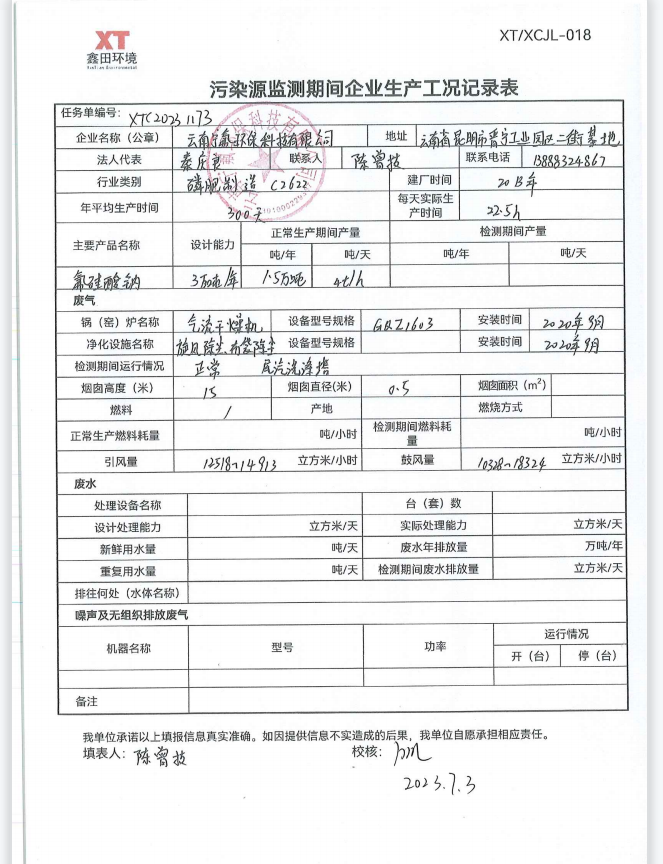 XT
鑫田环境
XT/XCJL-018
污染源监测期间企业生产工况记录表
任务单编号: XTC20231173
企业名称（公章） 云南 氟环保科技有限公司 地址 云南省昆明市晋宁工业园区二街基地
法人代表 秦庆良 联系人 陈曾技 联系电话 13888324867
行业类别 磷肥制造 C2622 建厂时间 2013年
年平均生产时间 300天 每天实际生产时间 22.5h
主要产品名称 设计能力 正常生产期间产量 检测期间产量
吨/年 吨/天 吨/年 吨/天
氟硅酸钠 3万吨/年 1.5万吨 4t/h
废气
锅（窑）炉名称 气流干燥机 设备型号规格 GQZ1603 安装时间 2020年9月
净化设施名称 旋风除尘、布袋除尘 设备型号规格 安装时间 2020年9月
检测期间运行情况 正常 尾汽洗涤塔
烟囱高度（米） 15 烟囱直径(米) 0.5 烟囱面积（m²）
燃料 / 产地 燃烧方式
正常生产燃料耗量 吨/小时 检测期间燃料耗量 吨/小时
引风量 12518~14913 立方米/小时 鼓风量 10328~18324 立方米/小时
废水
处理设备名称 台（套）数
设计处理能力 立方米/天 实际处理能力 立方米/天
新鲜用水量 吨/天 废水年排放量 万吨/年
重复用水量 吨/天 检测期间废水排放量 立方米/天
排往何处（水体名称）
噪声及无组织排放废气
机器名称 型号 功率 运行情况
开（台） 停（台）
备注
我单位承诺以上填报信息真实准确。如因提供信息不实造成的后果，我单位自愿承担相应责任。
填表人: 陈曾技 校核:
2023.7.3